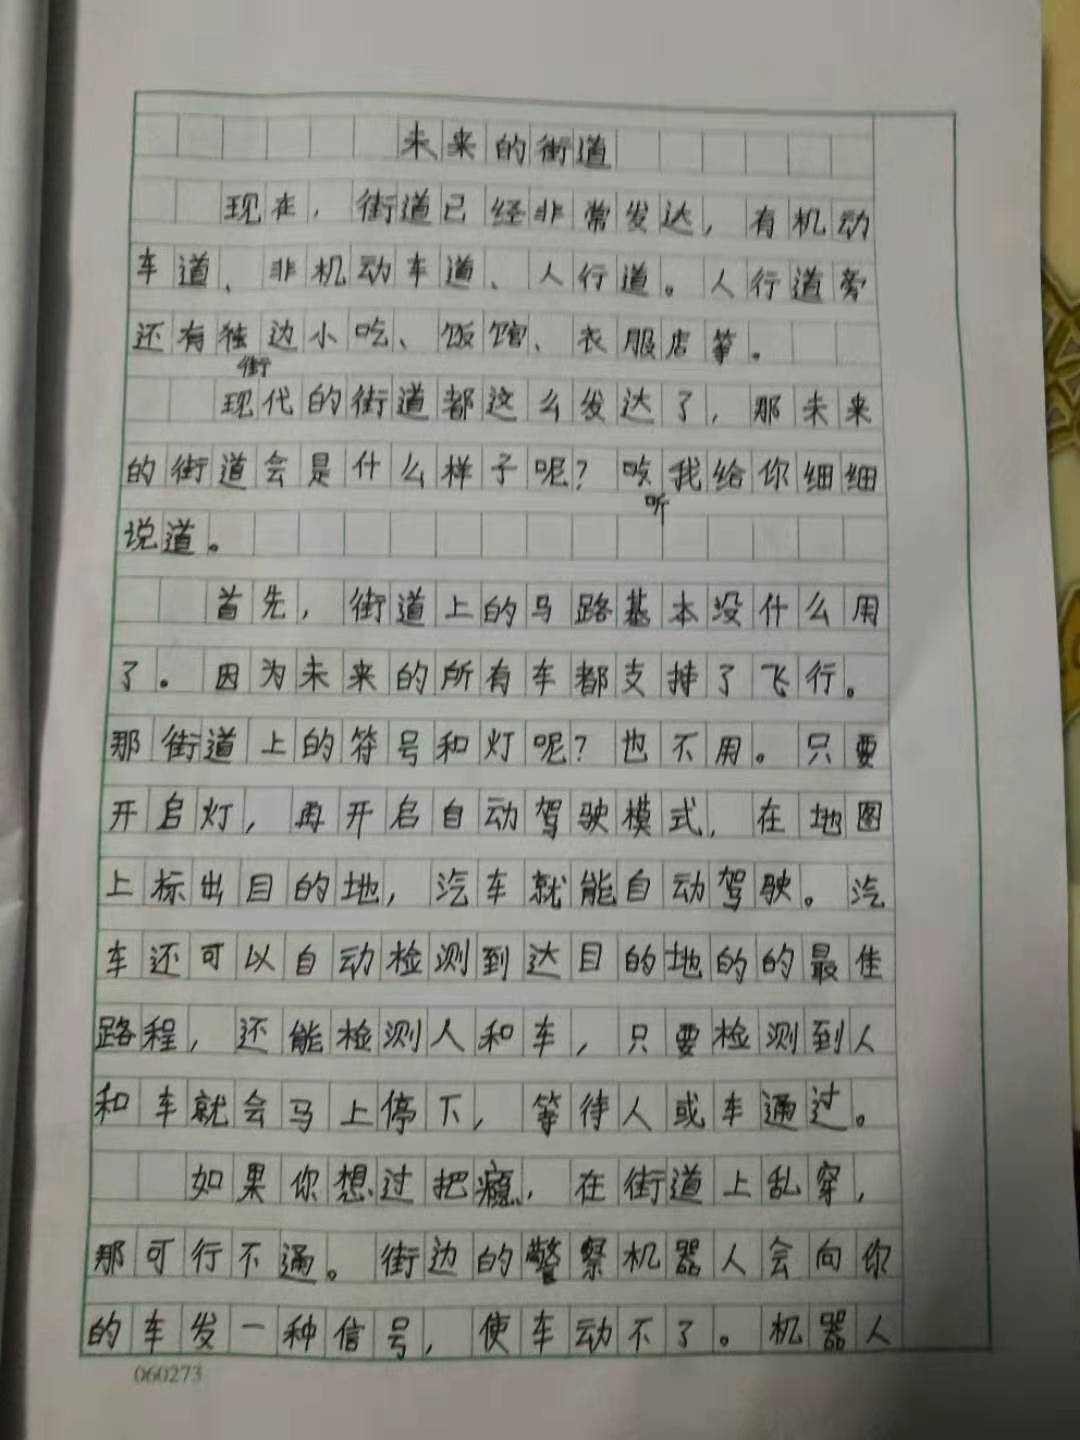 未来的街道
现在，街道已经非常发达，有机动
车道、非机动车道、人行道。人行道旁
还有独边小吃、饭馆、衣服店等。
街
现代的街道都这么发达了，那未来
的街道会是什么样子呢？咬我给你细细
听
说道。
首先，街道上的马路基本没什么用
了。因为未来的所有车都支持了飞行。
那街道上的符号和灯呢？也不用。只要
开启灯，再开启自动驾驶模式，在地图
上标出目的地，汽车就能自动驾驶。汽
车还可以自动检测到达目的地的的最佳
路程，还能检测人和车，只要检测到人
和车就会马上停下，等待人或车通过。
如果你想过把瘾，在街道上乱穿，
那可行不通。街边的警察机器人会向你
的车发一种信号，使车动不了。机器人
060273